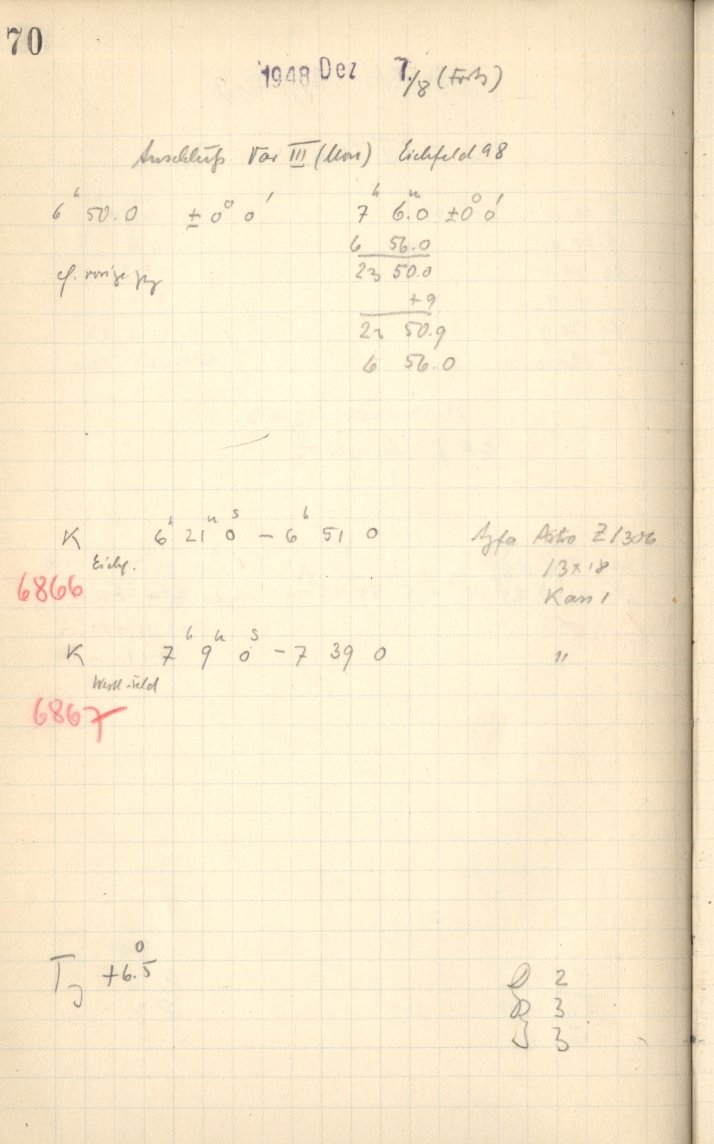 70
1948 Dez 7./8 (Forts)
Anschluß Var III (Mon) Eichfeld 98
6h 50.0 ± 0° 0'
cf. vorige
7h 6.0m ± 0° 0'
6 56.0
23 50.0
+9
50.9
6 56.0
K 6h 21m 0s – 6h 51 0 Agfa Astro Z 1306
Eichf. 13x18
6866 Kass 1
K 7h 9m 0s – 7 39 0 "
6867
T +6.5°
2
3
3